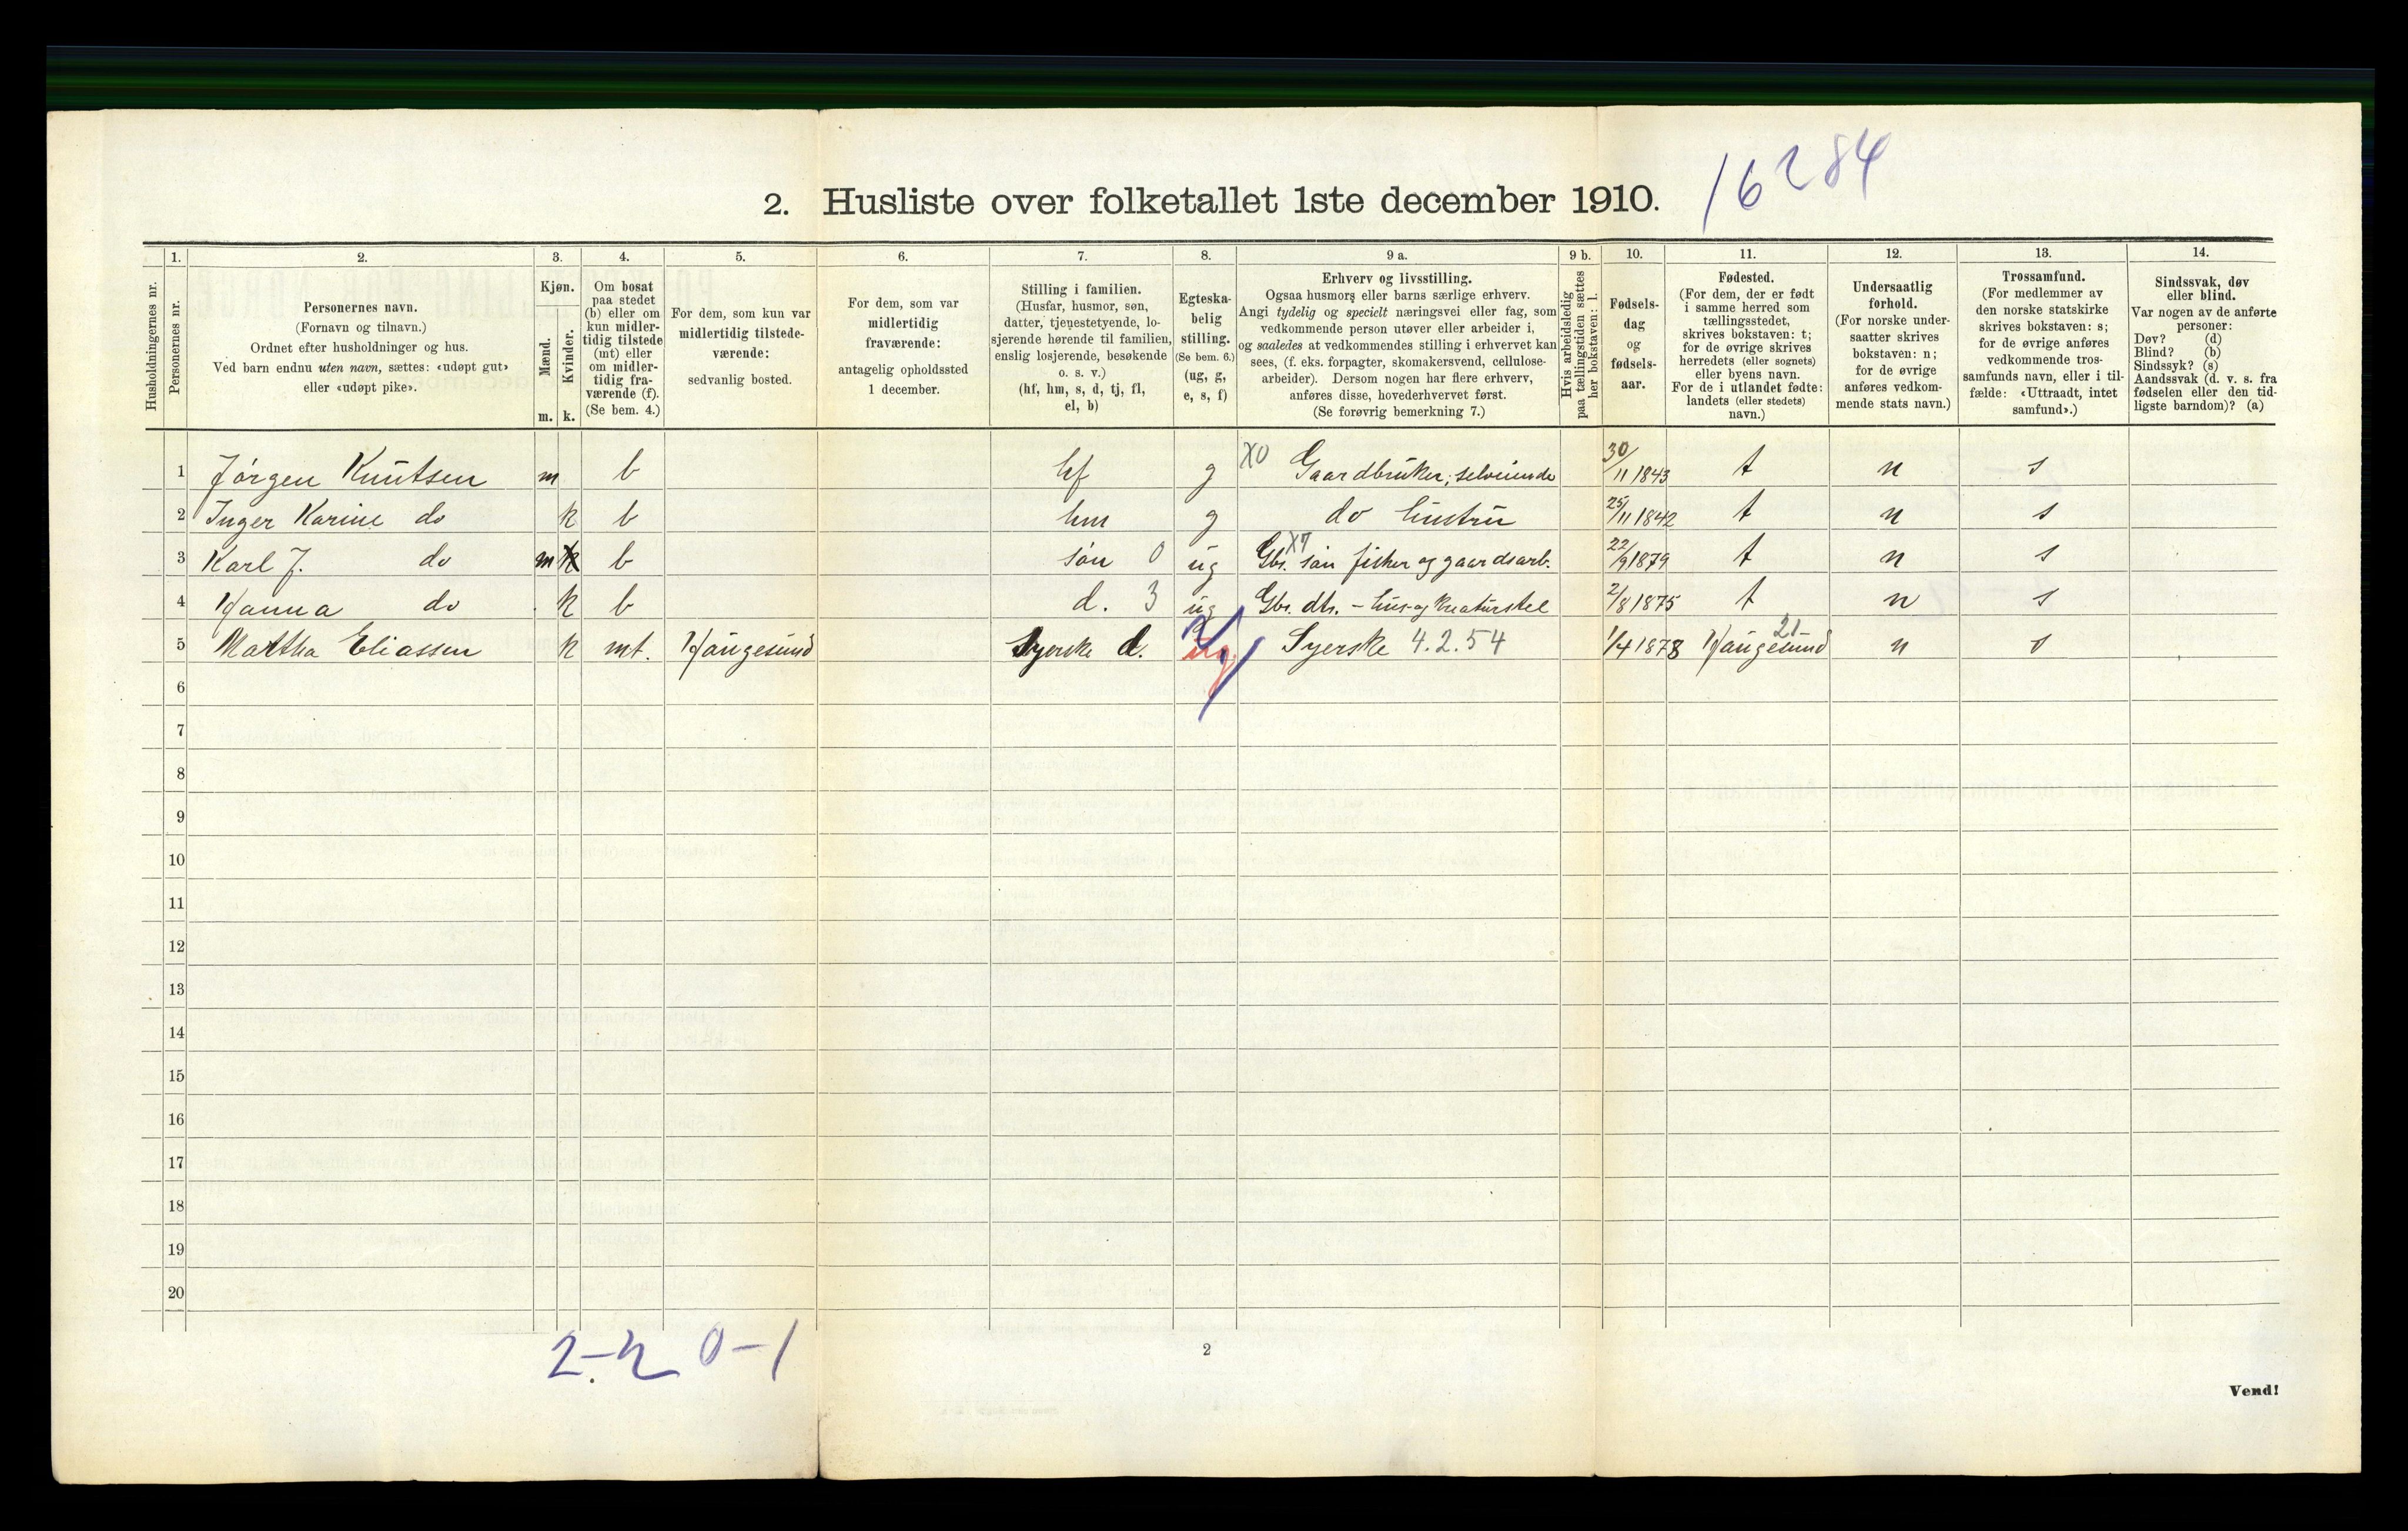 16284
2. Husliste over folketallet 1ste december 1910.
1. 2. 3. 4. 5. 6. 7. 8. 9 a. 9 b. 10. 11. 12. 13. 14.
Husholdningernes nr.
Personernes nr.
Personernes navn.
(Fornavn og tilnavn.)
Ordnet efter husholdninger og hus.
Ved barn endnu uten navn, sættes: «udøpt gut»
eller «udøpt pike».
Kjøn.
Mænd.
Kvinder.
m. k.
Om bosat
paa stedet
(b) eller om
kun midler-
tidig tilstede
(mt) eller
om midler-
tidig fra-
værende (f).
(Se bem. 4.)
For dem, som kun var
midlertidig tilstede-
værende:
sedvanlig bosted.
For dem, som var
midlertidig
fraværende:
antagelig opholdssted
1 december.
Stilling i familien.
(Husfar, husmor, søn,
datter, tjenestetyende, lo-
sjerende hørende til familien,
enslig losjerende, besøkende
o. s. v.)
(hf, hm, s, d, tj, fl,
el, b)
Egteska-
belig
stilling.
(Se bem. 6.)
(ug, g,
e, s, f)
Erhverv og livsstilling.
Ogsaa husmors eller barns særlige erhverv.
Angi tydelig og specielt næringsvei eller fag, som
vedkommende person utøver eller arbeider i,
og saaledes at vedkommendes stilling i erhvervet kan
sees, (f. eks. forpagter, skomakersvend, cellulose-
arbeider). Dersom nogen har flere erhverv,
anføres disse, hovederhvervet først.
(Se forøvrig bemerkning 7.)
Hvis arbeidsledig
paa tællingstiden sættes
her bokstaven: l.
Fødsels-
dag
og
fødsels-
aar.
Fødested.
(For dem, der er født
i samme herred som
tællingsstedet,
skrives bokstaven: t;
for de øvrige skrives
herredets (eller sognets)
eller byens navn.
For de i utlandet fødte:
landets (eller stedets)
navn.)
Undersaatlig
forhold.
(For norske under-
saatter skrives
bokstaven: n;
for de øvrige
anføres vedkom-
mende stats navn.)
Trossamfund.
(For medlemmer av
den norske statskirke
skrives bokstaven: s;
for de øvrige anføres
vedkommende tros-
samfunds navn, eller i til-
fælde: «Uttraadt, intet
samfund».)
Sindssvak, døv
eller blind.
Var nogen av de anførte
personer:
Døv? (d)
Blind? (b)
Sindssyk? (s)
Aandssvak (d. v. s. fra
fødselen eller den tid-
ligste barndom)? (a)
1 Jørgen Knutsen m b hf g X0 Gaardbruker, selveiende 30/11 1843 t n s
2 Inger Karine do k b hm g do hustru 25/11 1842 t n s
3 Karl J. do m k b søn 0 ug X7 Gbr. søn fisker og gaardsarb. 22/9 1879 t n s
4 Hanna do k b d. 3 ug Gbr. dtr. - hus- og kreaturstel 2/8 1875 t n s
5 Martha Eliassen k mt. Haugesund Syerske d. ug Syerske 4.2.54 1/4 1878 Haugesund 21 n s
6
7
8
9
10
11
12
13
14
15
16
17
18
19
20
2-2 0-1
2
Vend!